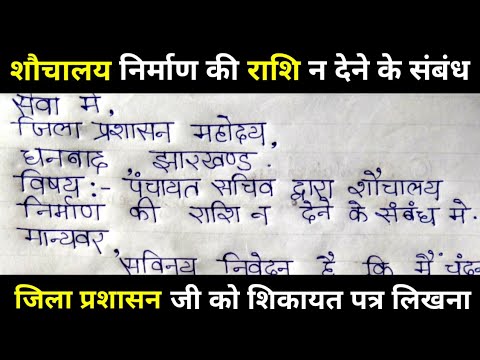 शौचालय निर्माण की राशि न देने के संबंध
सेवा में,
जिला प्रशासन महोदय,
धनबाद, झारखण्ड.
विषय:- पंचायत सचिव द्वारा शौचालय
निर्माण की राशि न देने के संबंध मे.
मान्यवर,
सविनय निवेदन है कि मैं चंदन
जिला प्रशासन जी को शिकायत पत्र लिखना